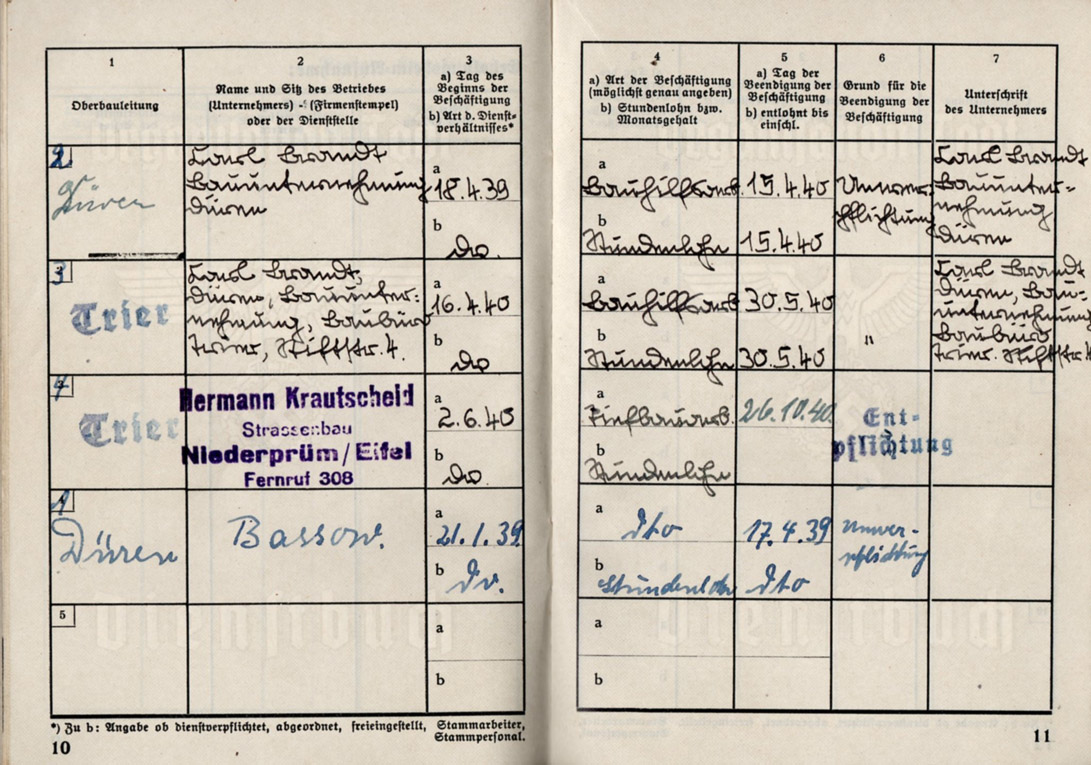 1
Oberbauleitung
2
Name und Sitz des Betriebes
(Unternehmers) - (Firmenstempel)
oder der Dienststelle
3
a) Tag des
Beginns der
Beschäftigung
b) Art d. Dienst-
verhältnisses*
4
a) Art der Beschäftigung
(möglichst genau angeben)
b) Stundenlohn bzw.
Monatsgehalt
5
a) Tag der
Beendigung der
Beschäftigung
b) entlohnt bis
einschl.
6
Grund für die
Beendigung der
Beschäftigung
7
Unterschrift
des Unternehmers
2
Düren
Karl Brandt
Bauunternehmung
Düren
a
18.4.39
b
do.
a
Bauhilfsarb.
b
Stundenlohn
15.4.40
15.4.40
Umver-
pflichtung
Karl Brandt
Bauunter-
nehmung
Düren
3
Trier
Karl Brandt,
Düren, Bauunter-
nehmung, Baubüro
Trier, Stiftstr. 4.
a
16.4.40
b
do
a
Bauhilfsarb
b
Stundenlohn
30.5.40
30.5.40
"
Karl Brandt
Düren, Bau-
unternehmung
Baubüro
Trier. Stiftstr. 4
4
Trier
Hermann Krautscheid
Strassenbau
Niederprüm/Eifel
Fernruf 308
a
2.6.40
b
do.
a
Tiefbauarb.
b
Stundenlohn
26.10.40.
Ent-
pflichtung
1
Düren
Bassow.
a
21.1.39
b
Do.
a
dto
b
Stundenlohn
17.4.39
dto
Umver-
pflichtung
5
a
b
a
b
*) Zu b: Angabe ob dienstverpflichtet, abgeordnet, freieingestellt, Stammarbeiter,
Stammpersonal.
10
11